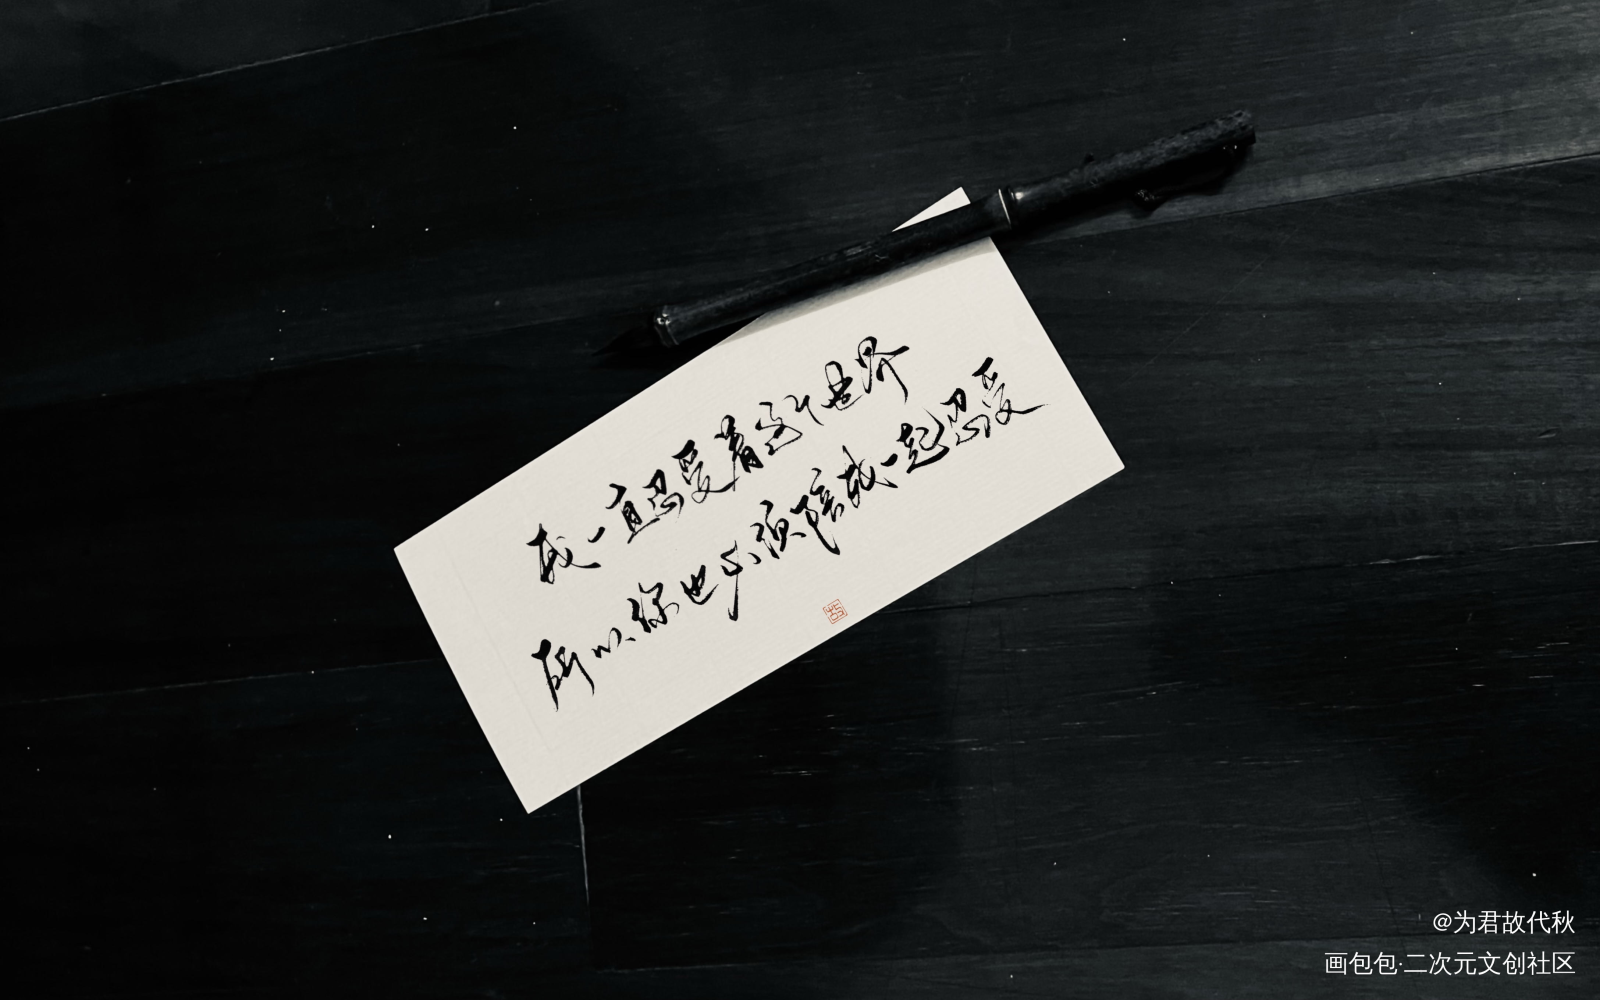 我一直忍受着这个世界
所以你也必须陪我一起忍受
@为君故代秋
画包包·二次元文创社区